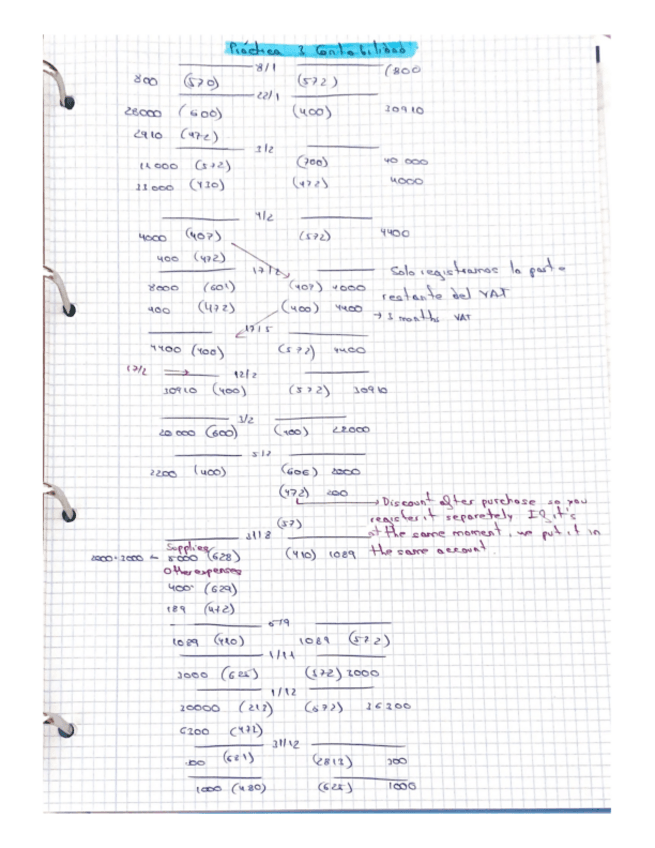 Práctica 3 Contabilidad
8/1
800 (570) (572) (800
22/1
28000 (600) (400) 30910
2910 (472)
3/2
11000 (572) (700) 40 000
33000 (430) (472) 4000
4/2
4000 (407) (572) 4400
400 (472)
17/2
8000 (601) (407) 4000
400 (472) (400) 4400
Solo registramos la parte
restante del VAT
→ 3 months VAT
17/5
4400 (400) (572) 4400
17/2 → 12/2
30910 (400) (572) 30910
3/2
20 000 (600) (400) 22000
2200 (400) (606) 2000
(472) 200
→ Discount after purchase so you
register it separately If it's
at the same moment, we put it in
the same account.
(57)
31/8
Supplies
5000 (628) (410) 1089
Other expenses
400 (629)
189 (472)
6/9
1089 (410) 1089 (572)
1/11
3000 (625) (572) 3000
1/12
30000 (213) 36300
6300 (472)
31/12
(681) (2813) 300
1000 (480) (625) 1000